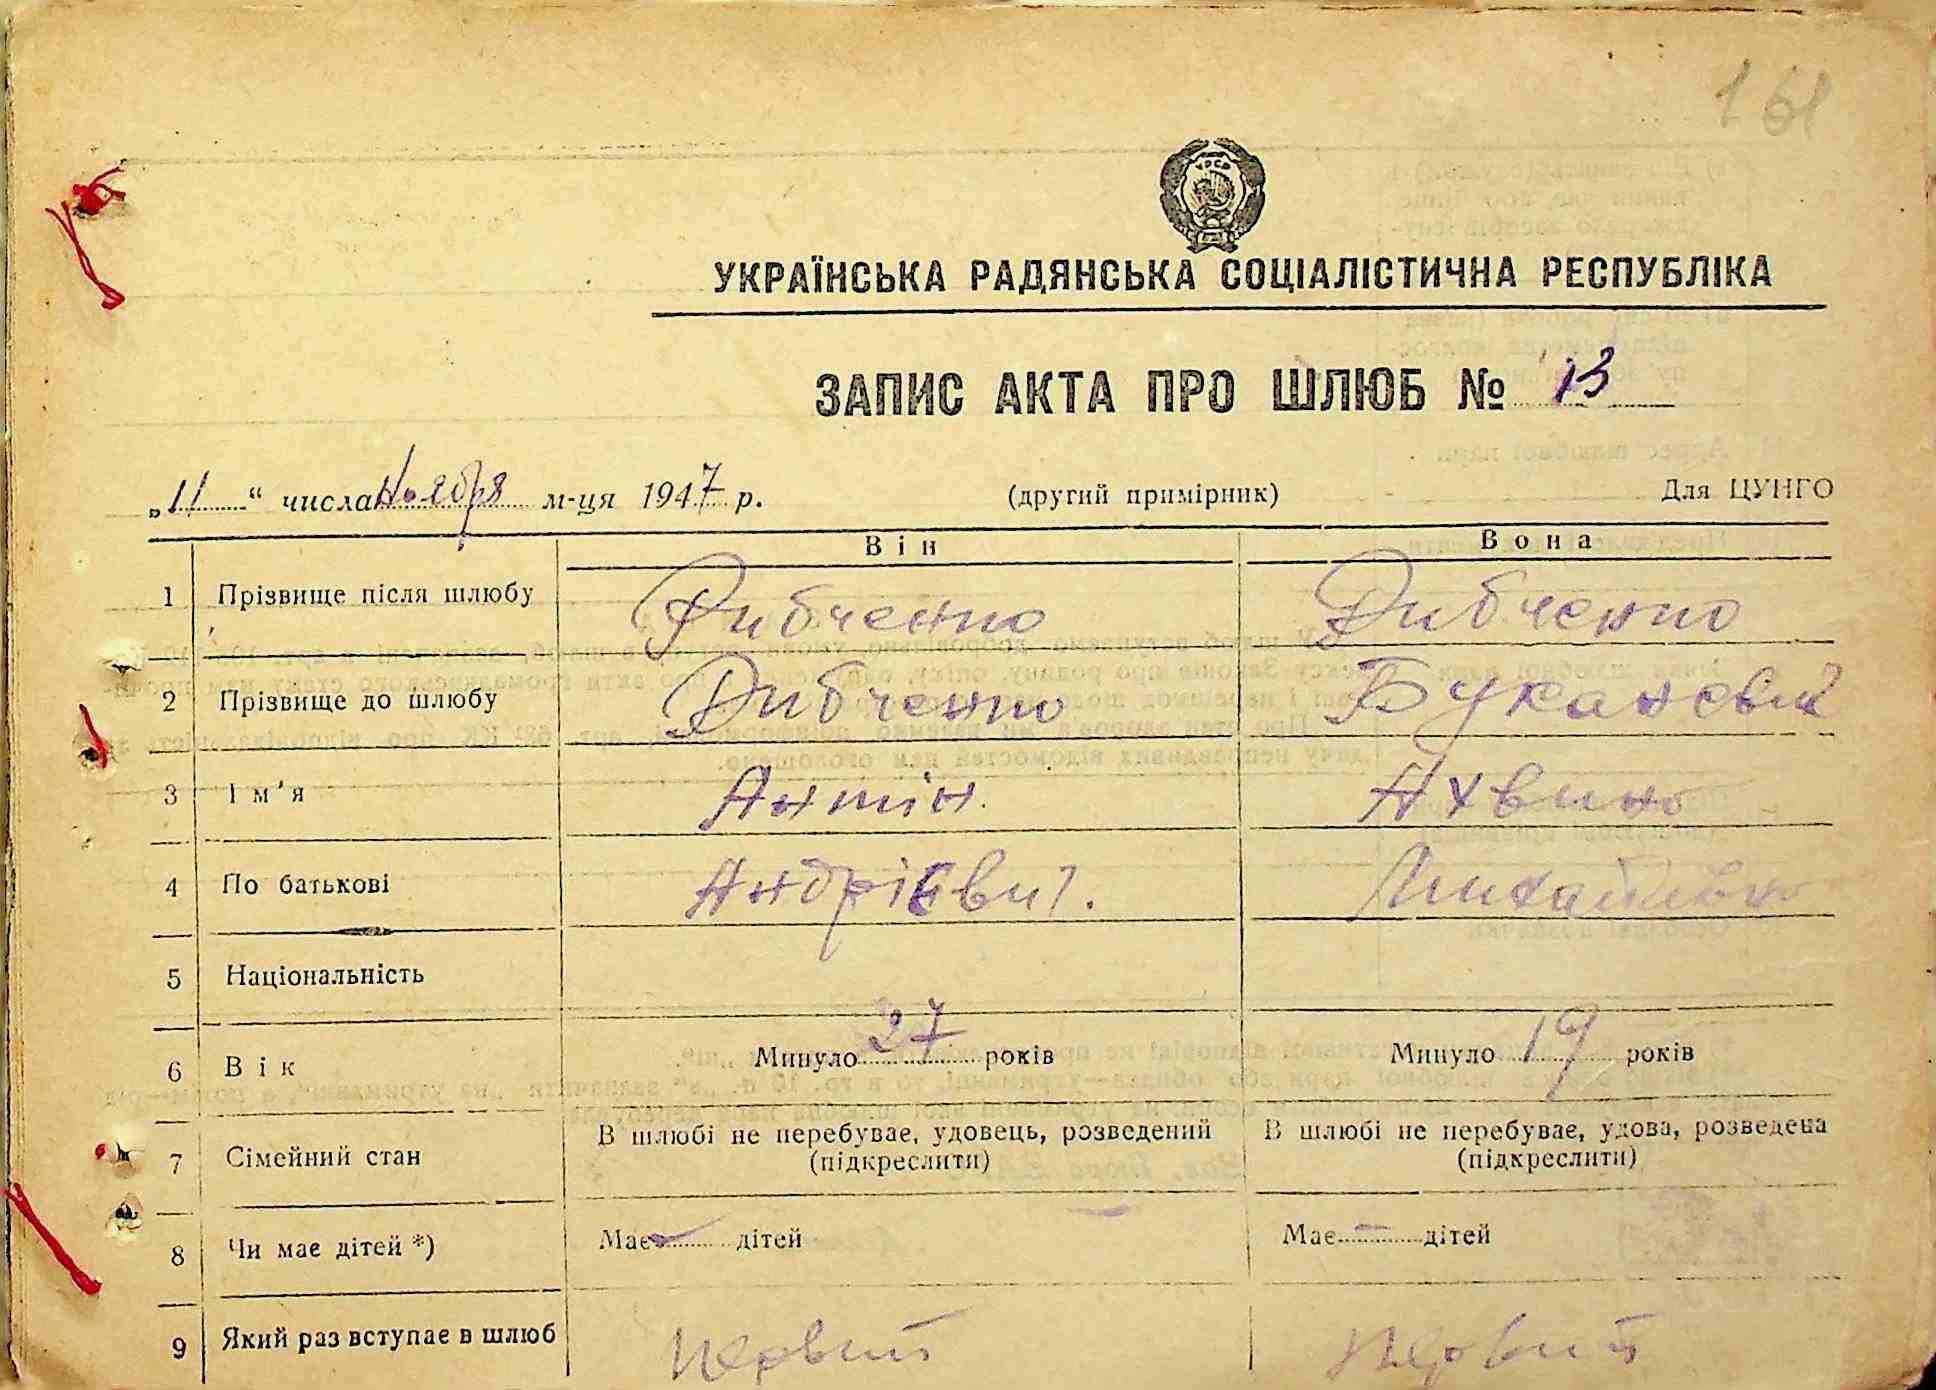 161
УРСР
УКРАЇНСЬКА РАДЯНСЬКА СОЦІАЛІСТИЧНА РЕСПУБЛІКА
ЗАПИС АКТА ПРО ШЛЮБ № 13
„11“ числа ноября м-ця 1947 р. (другий примірник) Для ЦУНГО
Він Вона
1 Прізвище після шлюбу Дибченко Дибченко
2 Прізвище до шлюбу Дибченко
3 Ім'я Антін
4 По батькові Андрієвич. Михайлівна
5 Національність
6 Вік Минуло 27 років Минуло 19 років
7 Сімейний стан В шлюбі не перебуває, удовець, розведений (підкреслити) В шлюбі не перебуває, удова, розведена (підкреслити)
8 Чи має дітей *) Має – дітей Має – дітей
9 Який раз вступає в шлюб Первий Первий